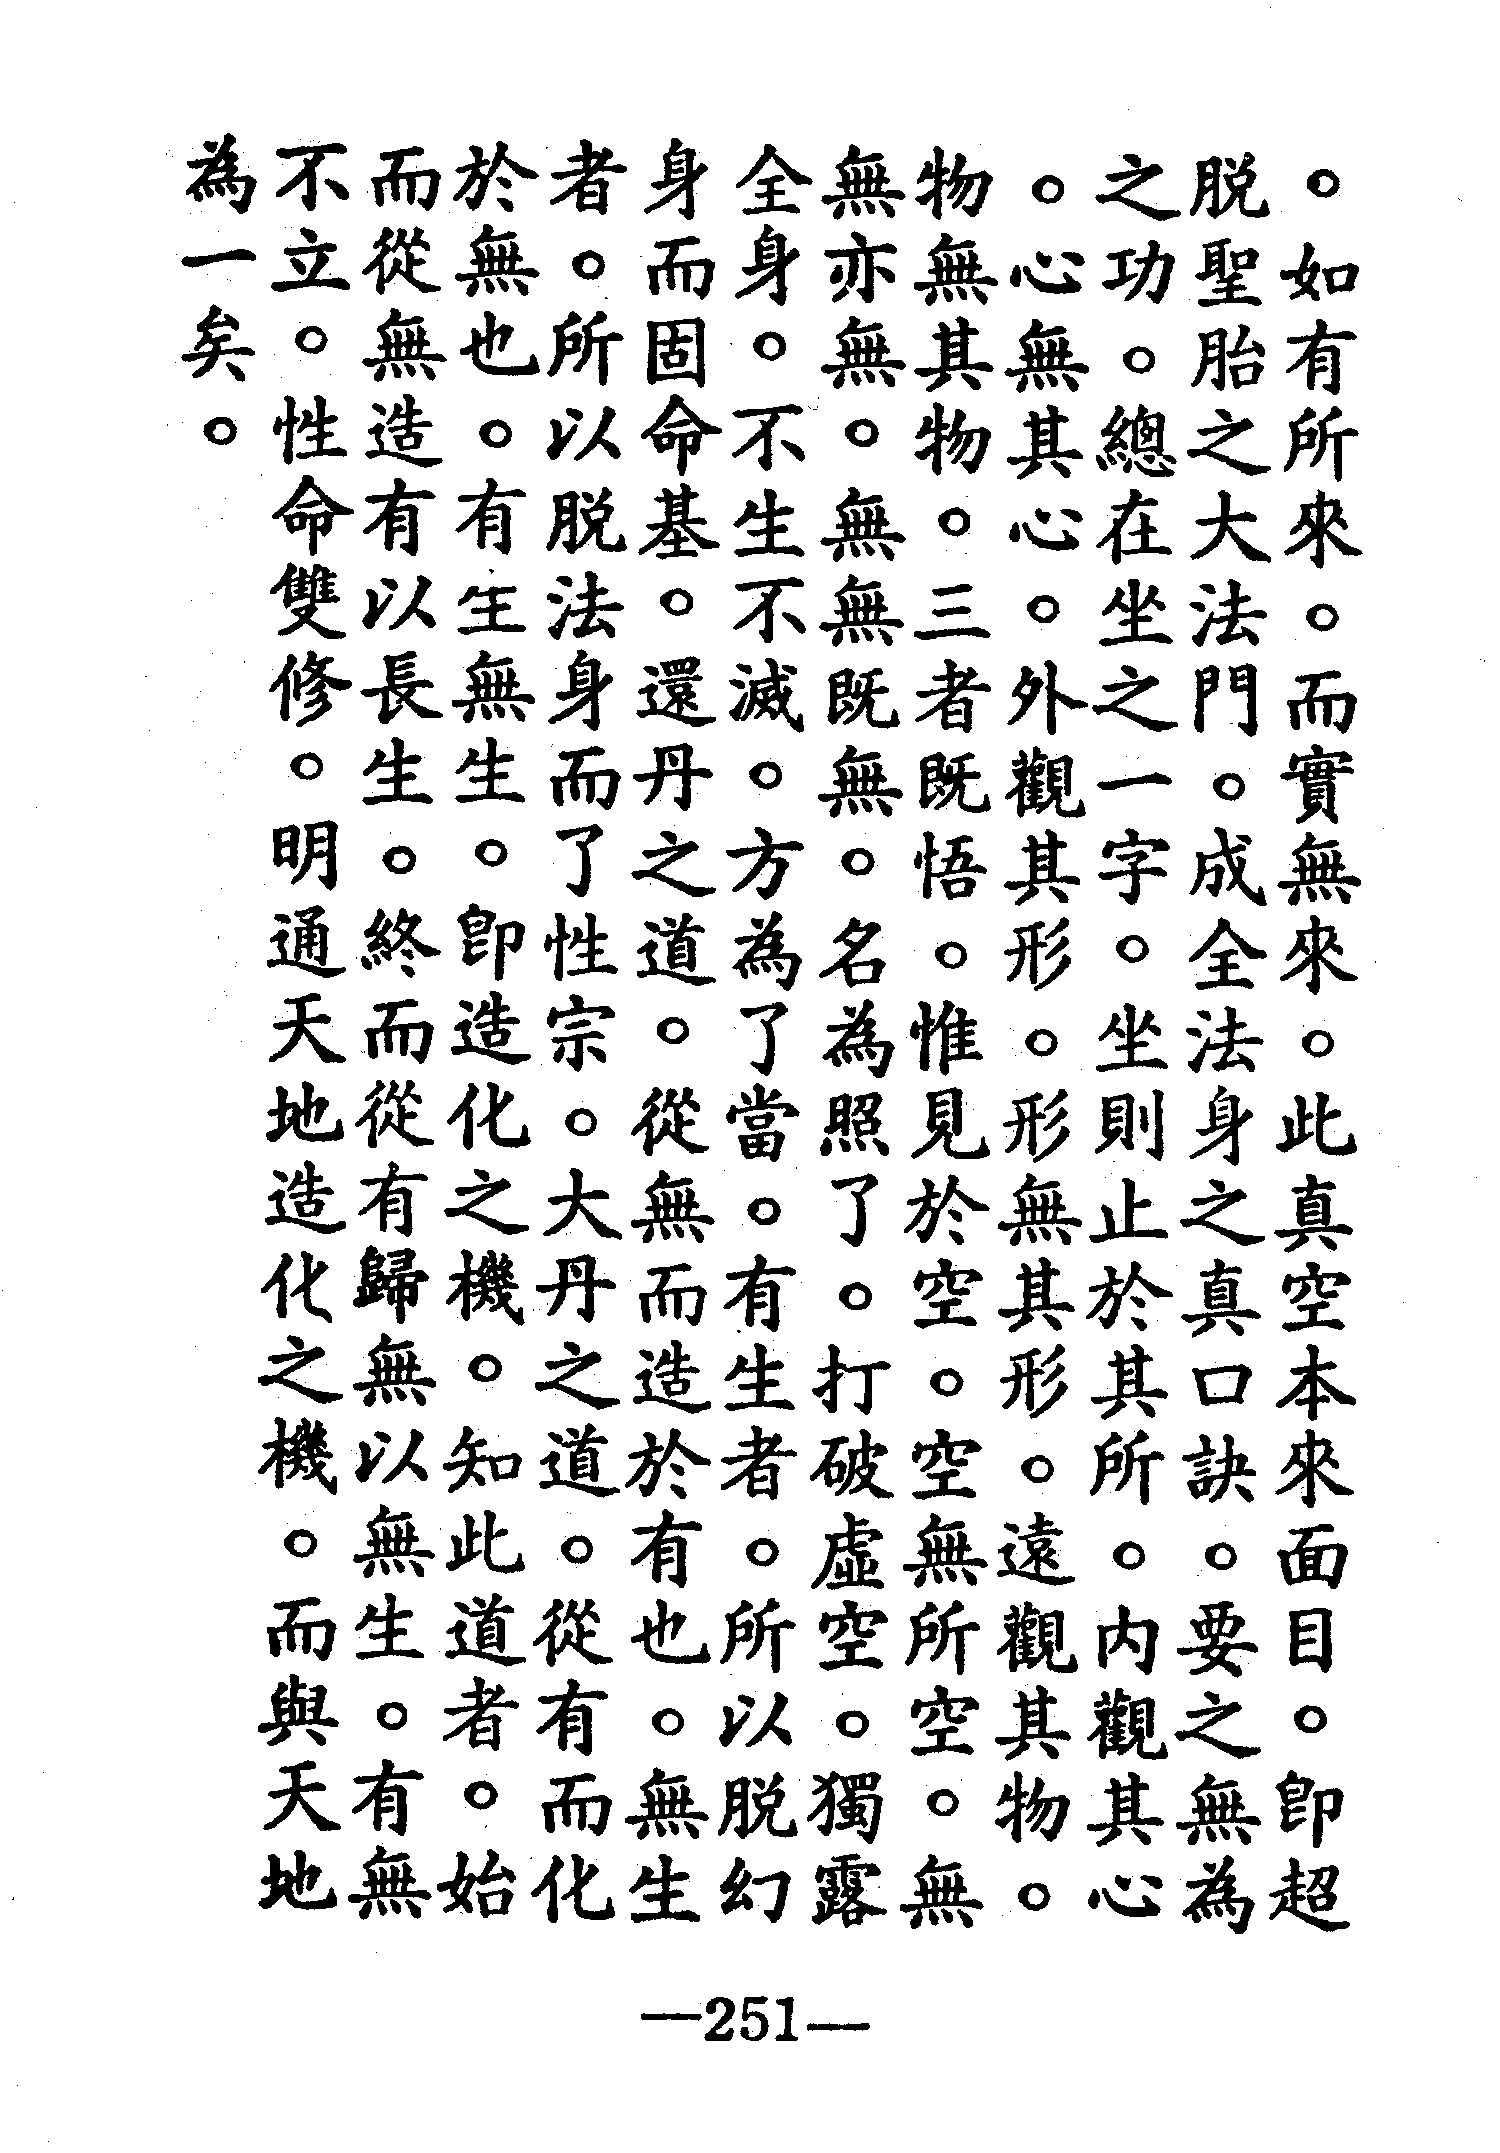 。如有所來。而實無來。此真空本來面目。即超
脱聖胎之大法門。成全法身之真口訣。要之無為
之功。總在坐之一字。坐則止於其所。内觀其心
。心無其心。外觀其形。形無其形。遠觀其物。
物無其物。三者既悟。惟見於空。空無所空。無
無亦無。無無既無。名為照了。打破虛空。獨露
全身。不生不滅。方為了當。有生者。所以脱幻
身而固命基。還丹之道。從無而造於有也。無生
者。所以脱法身而了性宗。大丹之道。從有而化
於無也。有生無生。即造化之機。知此道者。始
而從無造有以長生。終而從有歸無以無生。有無
不立。性命雙修。明通天地造化之機。而與天地
為一矣。
—251—